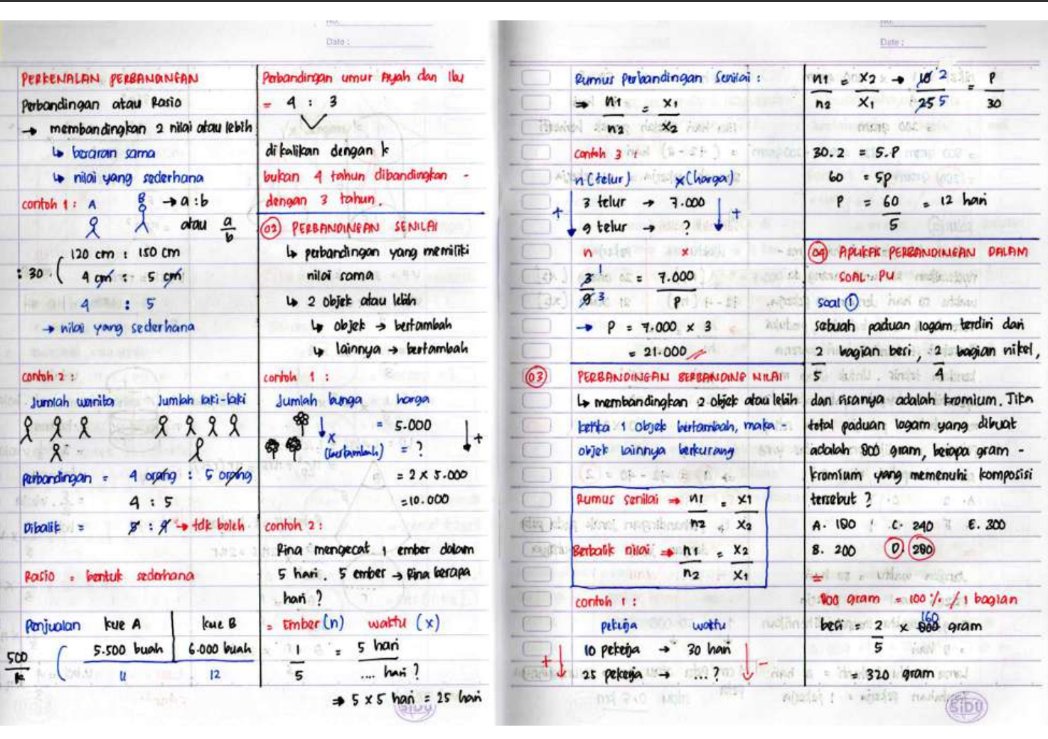 No:
Date :
PERKENALAN PERBANDINGAN
Perbandingan atau Rasio
→ membandingkan 2 nilai atau lebih
↳ besaran sama
↳ nilai yang sederhana
contoh 1 : A B → a : b
atau a/b
120 cm : 150 cm
: 30 ( 4 cm : 5 cm
4 : 5
→ nilai yang sederhana
contoh 2 :
Jumlah wanita Jumlah laki-laki
Perbandingan = 4 orang : 5 orang
4 : 5
Dibalik = 5 : 4 → tdk boleh
Rasio = bentuk sederhana
Penjualan kue A kue B
500/k ( 5.500 buah 6.000 buah
11 12
Perbandingan umur Ayah dan Ibu
= 4 : 3
dikalikan dengan k
bukan 4 tahun dibandingkan -
dengan 3 tahun.
02 PERBANDINGAN SENILAI
↳ perbandingan yang memiliki
nilai sama
↳ 2 objek atau lebih
↳ objek → bertambah
↳ lainnya → bertambah
contoh 1 :
Jumlah bunga harga
= 5.000
x (bertambah) = ? +
= 2 x 5.000
= 10.000
contoh 2 :
Rina mengecat 1 ember dalam
5 hari. 5 ember → Rina berapa
hari ?
= Ember (n) waktu (x)
1/5 = 5 hari/... hari ?
⇒ 5 x 5 hari = 25 hari
SiDU
No:
Date :
Rumus Perbandingan Senilai :
⇒ n1/n2 = x1/x2
contoh 3 :
n (telur) x (harga)
+ 3 telur → 7.000 +
9 telur → ?
n x
3 1/9 3 = 7.000/P
→ P = 7.000 x 3
= 21.000
03 PERBANDINGAN BERBANDING NILAI
↳ membandingkan 2 objek atau lebih
ketika 1 objek bertambah, maka
objek lainnya berkurang
Rumus senilai ⇒ n1/n2 = x1/x2
Berbalik nilai ⇒ n1/n2 = x2/x1
contoh 1 :
pekerja waktu
+ 10 pekerja → 30 hari -
25 pekerja → ...?
n1/n2 = x2/x1 → 10 2/25 5 = P/30
30.2 = 5.P
60 = 5P
P = 60/5 = 12 hari
04 APLIKASI PERBANDINGAN DALAM
SOAL PU
Soal 1
Sebuah paduan logam terdiri dari
2/5 bagian besi, 2/4 bagian nikel,
dan sisanya adalah kromium. Jika
total paduan logam yang dibuat
adalah 800 gram, berapa gram -
kromium yang memenuhi komposisi
tersebut ?
A. 180 C. 240 E. 300
B. 200 D. 280
=
800 gram = 100 % / 1 bagian
besi = 2/5 x 800 160 gram
= 320 gram
SiDU